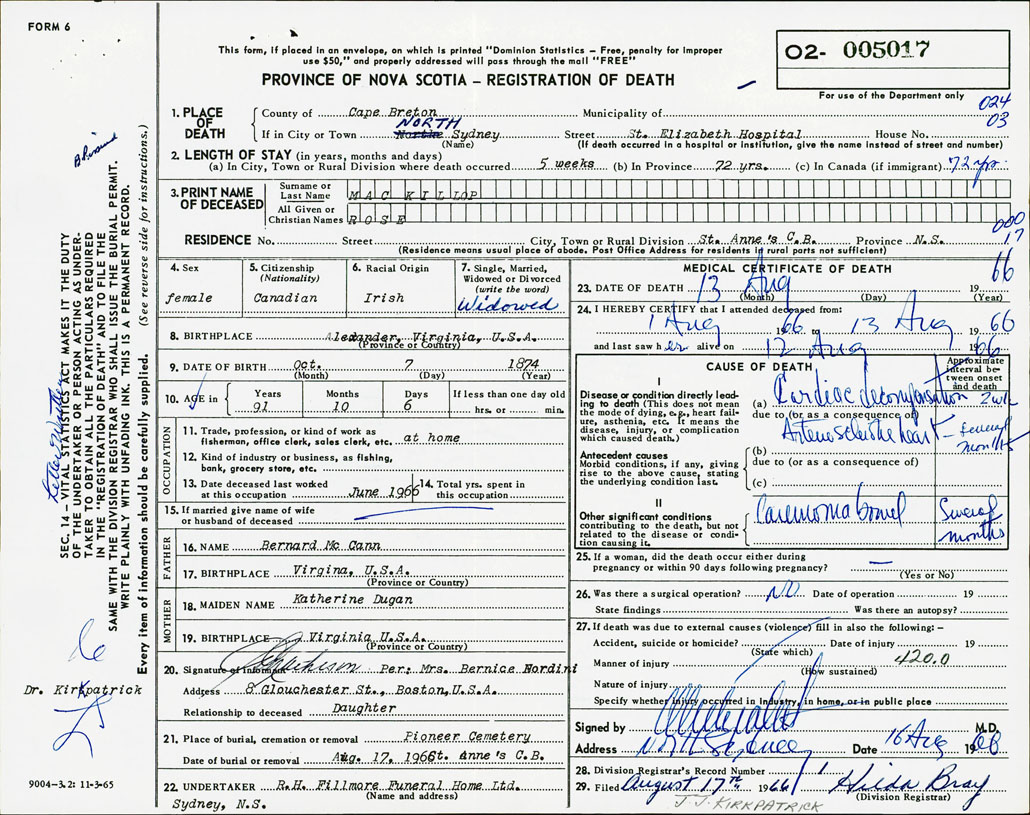 FORM 6
This form, if placed in an envelope, on which is printed "Dominion Statistics – Free, penalty for improper
use $50," and properly addressed will pass through the mail "FREE"
PROVINCE OF NOVA SCOTIA – REGISTRATION OF DEATH
O2- 005017
For use of the Department only
024
03
1. PLACE OF DEATH
County of Cape Breton Municipality of
NORTH
If in City or Town Sydney Street St. Elizabeth Hospital House No.
(Name) (If death occurred in a hospital or institution, give the name instead of street and number)
2. LENGTH OF STAY (in years, months and days)
(a) In City, Town or Rural Division where death occurred 5 weeks (b) In Province 72 yrs. (c) In Canada (if immigrant) 72 yrs.
3. PRINT NAME OF DECEASED
Surname or Last Name MAC KILLOP
All Given or Christian Names ROSE
000
17
RESIDENCE No. Street City, Town or Rural Division St. Anne's C.B. Province N.S.
(Residence means usual place of abode. Post Office Address for residents in rural parts not sufficient)
4. Sex female
5. Citizenship (Nationality) Canadian
6. Racial Origin Irish
7. Single, Married, Widowed or Divorced (write the word) Widowed
8. BIRTHPLACE Alexander, Virginia, U.S.A.
(Province or Country)
9. DATE OF BIRTH Oct. 7 1874
(Month) (Day) (Year)
10. AGE in Years 91 Months 10 Days 6 If less than one day old hrs. or min.
OCCUPATION
11. Trade, profession, or kind of work as fisherman, office clerk, sales clerk, etc. at home
12. Kind of industry or business, as fishing, bank, grocery store, etc.
13. Date deceased last worked at this occupation June 1966
14. Total yrs. spent in this occupation
15. If married give name of wife or husband of deceased
FATHER
16. NAME Bernard Mc Cann
17. BIRTHPLACE Virgina, U.S.A.
(Province or Country)
MOTHER
18. MAIDEN NAME Katherine Dugan
19. BIRTHPLACE Virginia U.S.A.
(Province or Country)
20. Signature of informant Per: Mrs. Bernice Nordini
Address 8 Glouchester St., Boston, U.S.A.
Relationship to deceased Daughter
21. Place of burial, cremation or removal Pioneer Cemetery
Date of burial or removal Aug. 17, 1966 St. Anne's C.B.
22. UNDERTAKER R.H. Fillmore Funeral Home Ltd.
(Name and address)
Sydney, N.S.
MEDICAL CERTIFICATE OF DEATH
23. DATE OF DEATH 13 Aug 19 66
(Month) (Day) (Year)
24. I HEREBY CERTIFY that I attended deceased from:
1 Aug 1966 to 13 Aug 1966
and last saw her alive on 12 Aug 1966
CAUSE OF DEATH
Approximate interval between onset and death
I
Disease or condition directly leading to death (This does not mean the mode of dying, e.g., heart failure, asthenia, etc. It means the disease, injury, or complication which caused death.)
(a) Cardiac decompensation 2 wk
due to (or as a consequence of)
Antecedent causes
Morbid conditions, if any, giving rise to the above cause, stating the underlying condition last.
(b) Arteriosclerotic heart – several months
due to (or as a consequence of)
(c)
II
Other significant conditions contributing to the death, but not related to the disease or condition causing it.
Carcinoma bowel Several months
25. If a woman, did the death occur either during pregnancy or within 90 days following pregnancy? —
(Yes or No)
26. Was there a surgical operation? NO Date of operation 19
State findings Was there an autopsy?
27. If death was due to external causes (violence) fill in also the following:–
Accident, suicide or homicide? Date of injury 19
(State which)
Manner of injury 420.0
(How sustained)
Nature of injury
Specify whether injury occurred in industry, in home, or in public place
Signed by M.D.
Address North Sydney Date 16 Aug 1966
28. Division Registrar's Record Number 1
29. Filed August 17th 1966 Hilda Bray
(Division Registrar)
J.J. KIRKPATRICK
SEC. 14 – VITAL STATISTICS ACT MAKES IT THE DUTY
OF THE UNDERTAKER OR PERSON ACTING AS UNDER-
TAKER TO OBTAIN ALL THE PARTICULARS REQUIRED
IN THE "REGISTRATION OF DEATH" AND TO FILE THE
SAME WITH THE DIVISION REGISTRAR WHO SHALL ISSUE THE BURIAL PERMIT.
WRITE PLAINLY WITH UNFADING INK. THIS IS A PERMANENT RECORD.
Every item of information should be carefully supplied. (See reverse side for instructions.)
Dr. Kirkpatrick
9004-3.2: 11-3-65